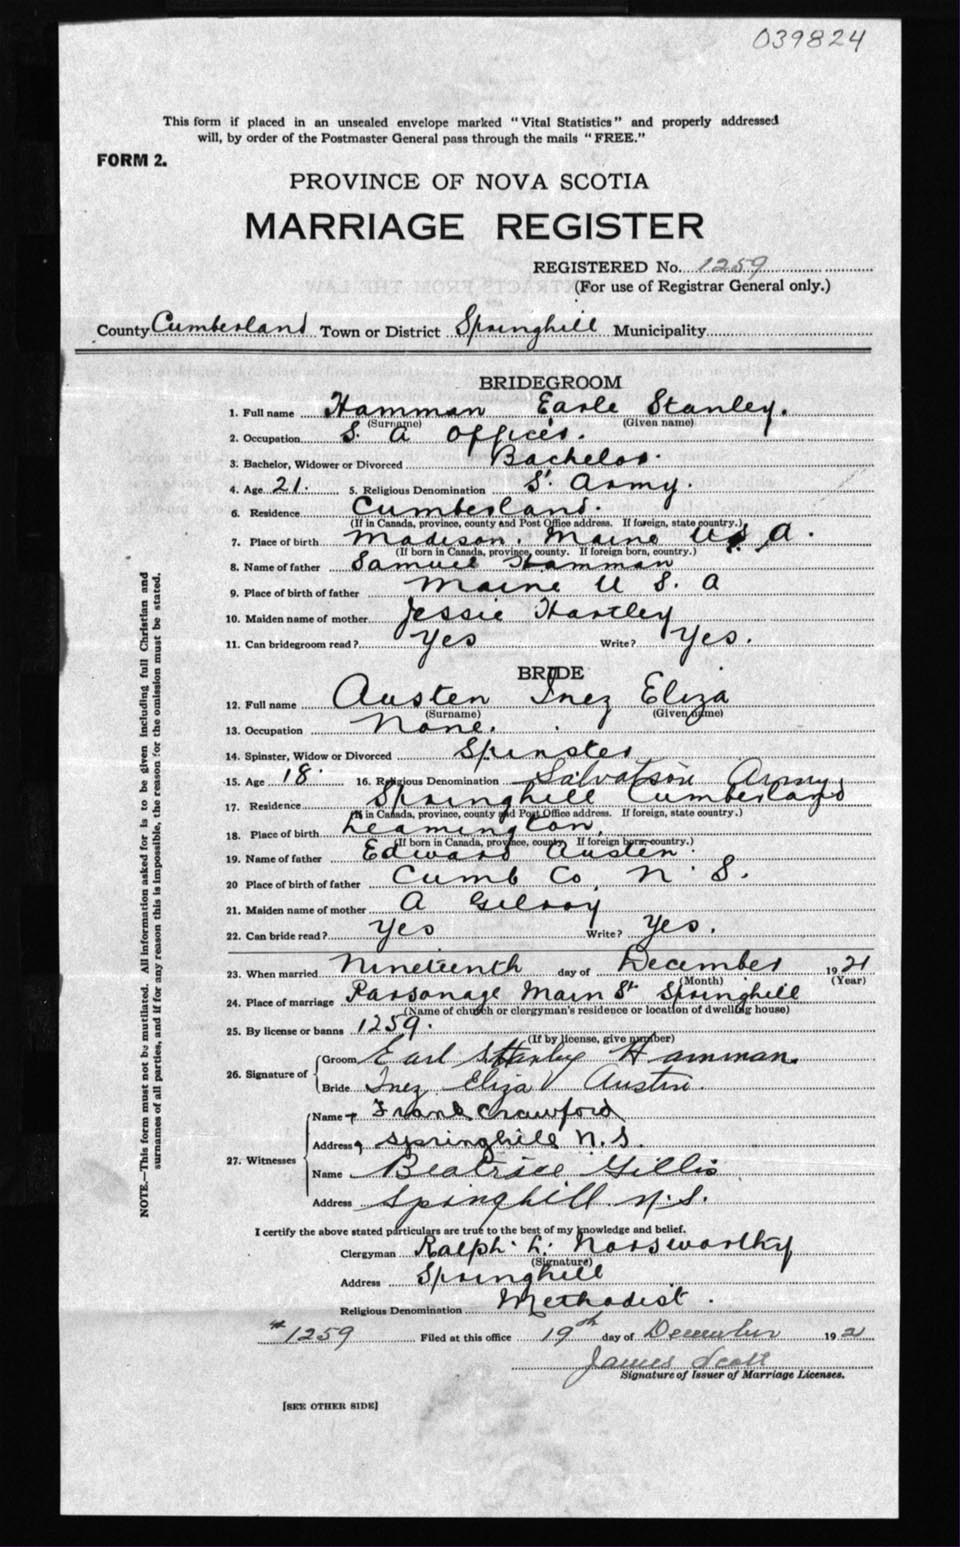 039824
This form if placed in an unsealed envelope marked "Vital Statistics" and properly addressed
will, by order of the Postmaster General pass through the mails "FREE."
FORM 2.
PROVINCE OF NOVA SCOTIA
MARRIAGE REGISTER
REGISTERED No. 1259
(For use of Registrar General only.)
County Cumberland Town or District Springhill Municipality
BRIDEGROOM
1. Full name Hamman Earle Stanley.
(Surname) (Given name)
2. Occupation S. A Officer.
3. Bachelor, Widower or Divorced Bachelor.
4. Age 21. 5. Religious Denomination S. Army.
6. Residence Cumberland.
(If in Canada, province, county and Post Office address. If foreign, state country.)
7. Place of birth Madison. Maine U.S.A.
(If born in Canada, province, county. If foreign born, country.)
8. Name of father Samuel Hamman
9. Place of birth of father Maine U S. A
10. Maiden name of mother Jessie Hartley
11. Can bridegroom read? Yes Write? Yes.
BRIDE
12. Full name Austen Inez Eliza
(Surname) (Given name)
13. Occupation None.
14. Spinster, Widow or Divorced Spinster
15. Age 18. 16. Religious Denomination Salvation Army
17. Residence Springhill Cumberland
(If in Canada, province, county and Post Office address. If foreign, state country.)
18. Place of birth Leamington.
(If born in Canada, province, county. If foreign born, country.)
19. Name of father Edward Austen.
20 Place of birth of father Cumb Co. N. S.
21. Maiden name of mother A Gilroy
22. Can bride read? Yes Write? Yes.
23. When married Nineteenth day of December 1921
(Month) (Year)
24. Place of marriage Parsonage Main St Springhill
(Name of church or clergyman's residence or location of dwelling house)
25. By license or banns 1259.
(If by license, give number)
26. Signature of Groom Earl Stanley Hamman.
Bride Inez Eliza Austin.
27. Witnesses Name Frank Crawford
Address Springhill N.S.
Name Beatrice Gillis
Address Springhill N.S.
I certify the above stated particulars are true to the best of my knowledge and belief.
Clergyman Ralph L. Norsworthy
(Signature)
Address Springhill
Religious Denomination Methodist.
# 1259 Filed at this office 19th day of December 1921
James Scott
Signature of Issuer of Marriage Licenses.
[SEE OTHER SIDE]
NOTE.—This form must not be mutilated. All information asked for is to be given including full Christian and
surnames of all parties, and if for any reason this is impossible, the reason for the omission must be stated.